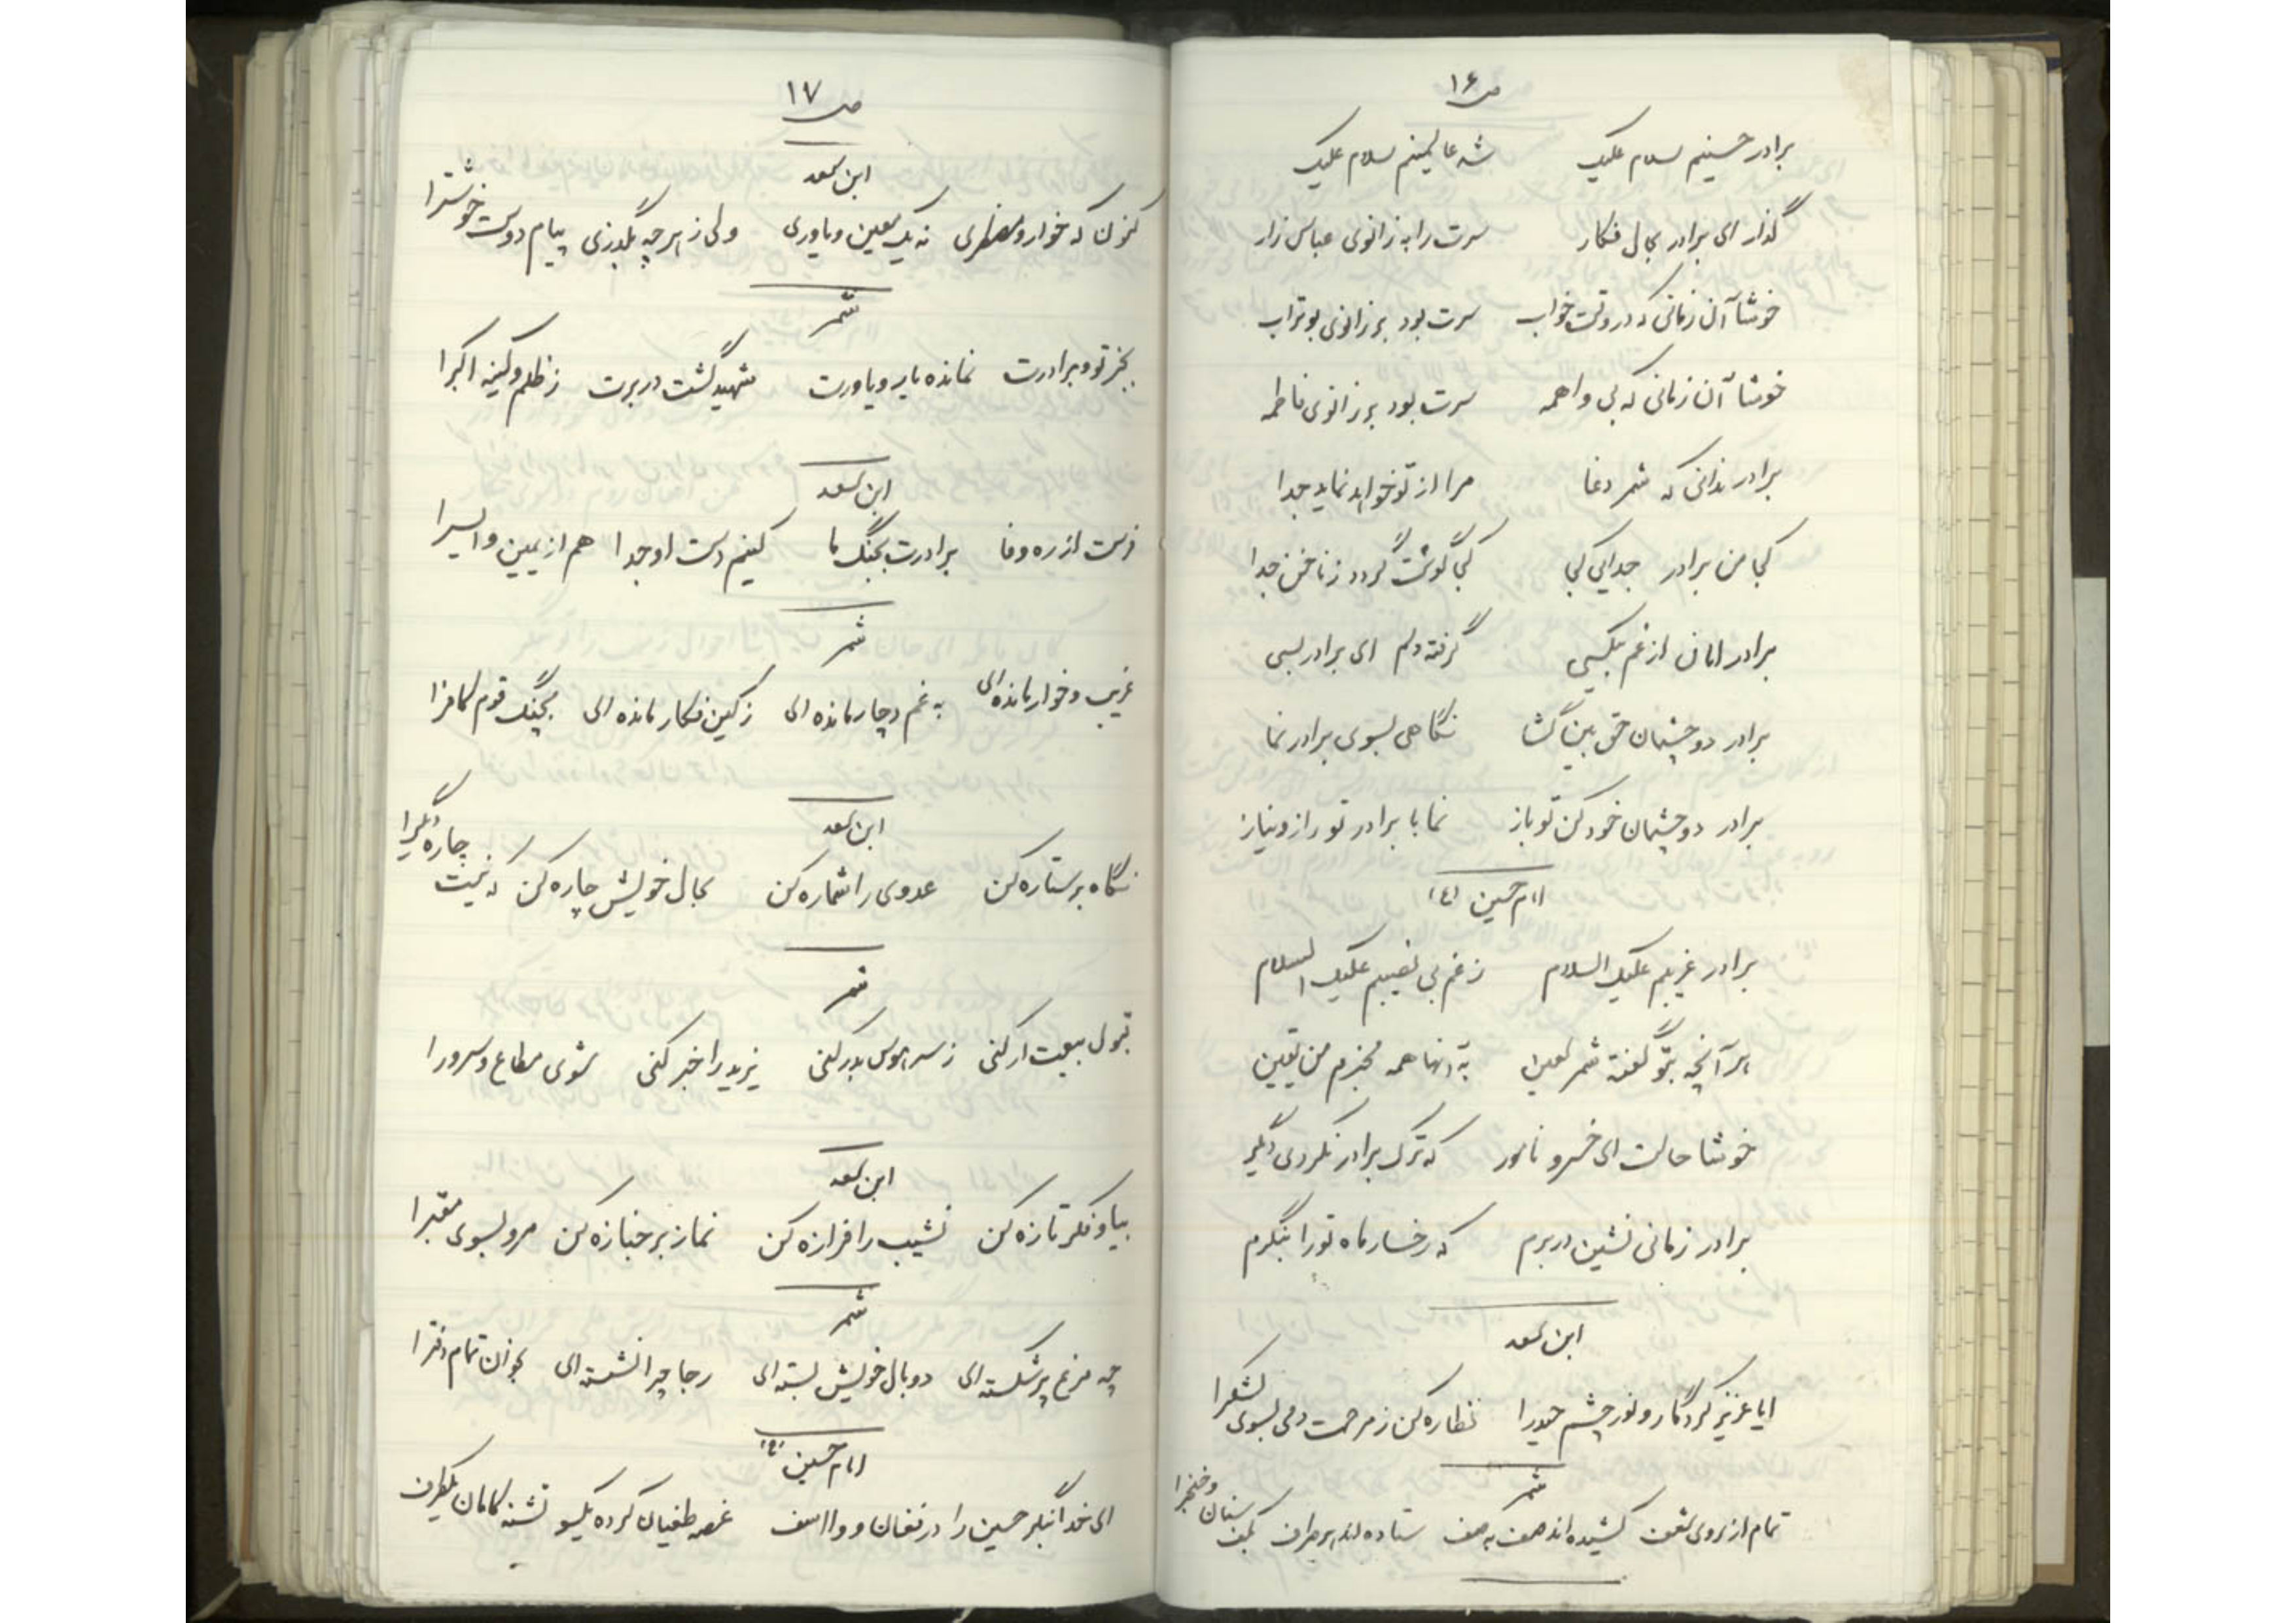 ص ۱۶
برادر حسینم سلام علیک شه عالمینم سلام علیک
گذار ای برادر بحال فکار سرت را به زانوی عباس زار
خوشا آن زمانی که در وقت خواب سرت بود بر زانوی بوتراب
خوشا آن زمانی که بی واهمه سرت بود بر زانوی فاطمه
برادر ندانی که شمر دغا مرا از تو خواهد نماید جدا
کجا من برادر جدایی کجا کجا گوشت گردد ز ناخن جدا
برادر امان از غم بیکسی گرفته دلم ای برادر بسی
برادر دو چشمان حق بین گشا نگاهی بسوی برادر نما
برادر دو چشمان خود کن تو باز نما با برادر تو راز و نیاز
امام حسین (ع)
برادر غریبم علیک السلام ز غم بی نصیبم علیک السلام
هر آنچه بتو گفته شمر لعین به آنها همه مخبرم من یقین
خوشا حالت ای خسرو نامور که ترک برادر نکردی دگر
برادر زمانی نشین در برم که رخسار ماه تو را بنگرم
ابن سعد
ایا عزیز کردگار و نور چشم حیدرا نظاره کن ز مرحمت دمی بسوی لشکرا
شمر
تمام از روی شعف کشیده اند صف به صف ستاده اند هر طرف بکف سنان و خنجرا
ص ۱۷
ابن سعد
کنون که خوار و مضطری نه یک معین و یاوری ولی ز هر چه بگذری پیام دوست خوشترا
شمر
بجز تو و برادرت نمانده یار و یاورت شهید گشت در برت ز ظلم و کینه اکبرا
ابن سعد
فرست از ره وفا برادرت بجنگ ما کنیم دست او جدا هم از یمین و ایسرا
شمر
غریب و خوار مانده ای به غم دچار مانده ای ز کین فکار مانده ای بجنگ قوم کافرا
ابن سعد
نگاه بر ستاره کن عدوی را شماره کن بحال خویش چاره کن که نیست چاره دیگرا
شمر
قبول بیعت ار کنی ز سر هوس بدر کنی یزید را خبر کنی شوی مطاع و سرورا
ابن سعد
بیا و فکر تازه کن نشیب را فرازه کن نماز بر جنازه کن مرو بسوی مقبرا
شمر
چه مرغ پر شکسته ای دو بال خویش بسته ای رجا چرا نشسته ای بخوان تمام دفترا
امام حسین (ع)
ای خدا بنگر حسین را در فغان و وااسف غصه طغیان کرده یکسو تشنه کامان یکطرف